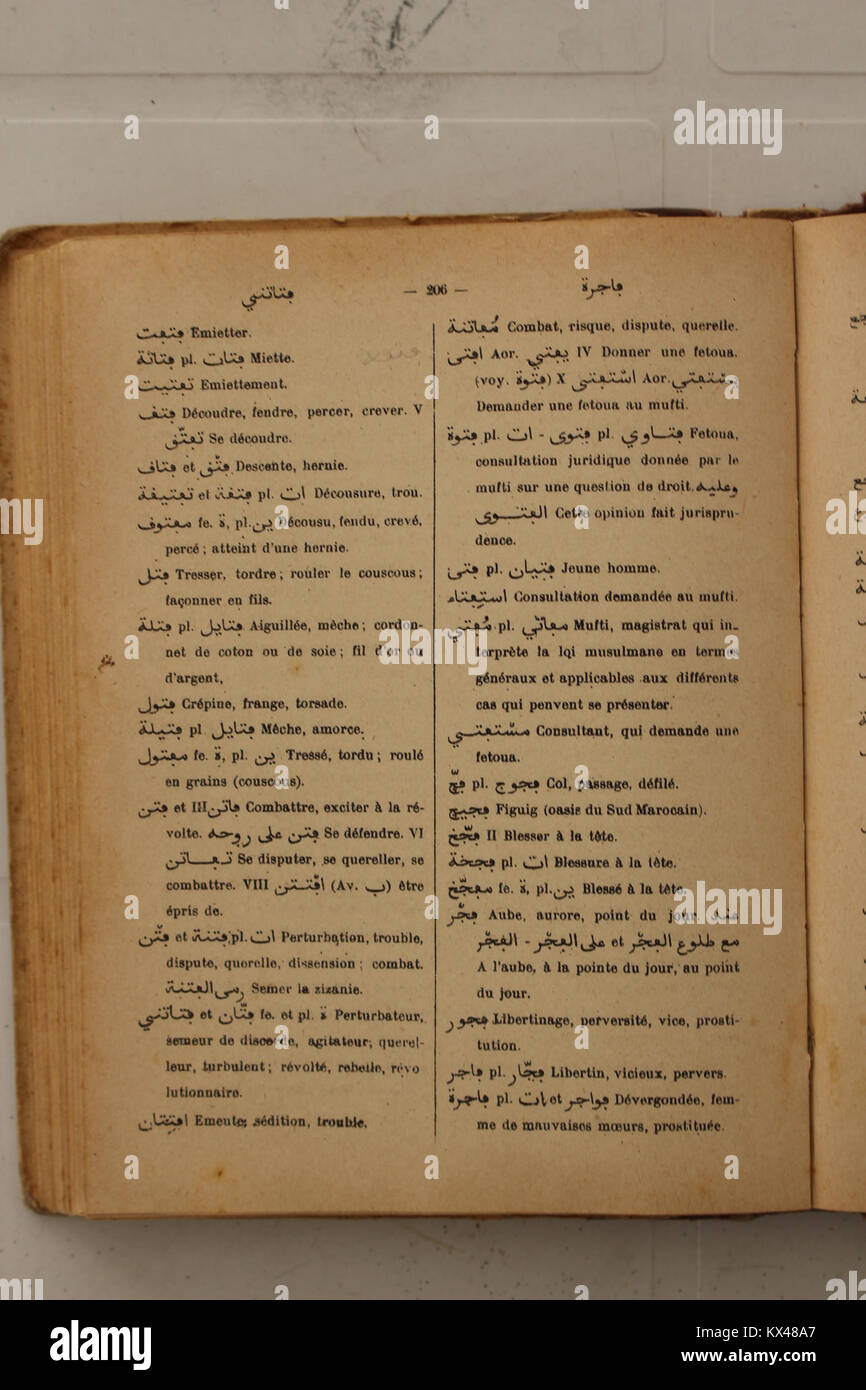 ڢتاتني — 206 — ڢاجرة
ڢتڢت Emietter.
ڢتاتة pl. ڢتات Miette.
تڢتيت Emiettement.
ڢتڧ Découdre, fendre, percer, crever. V
تڢتّڧ Se découdre.
ڢتاڧ et ڢتْڧ Descente, hernie.
تڢتيڧة et ڢتڧة pl. ات Décousure, trou.
مڢتوڧ fe. ة, pl. ين Décousu, fendu, crevé,
percé ; atteint d'une hernie.
ڢتل Tresser, tordre ; rouler le couscous ;
façonner en fils.
ڢتلة pl. ڢتايل Aiguillée, mèche ; cordon-
net de coton ou de soie ; fil d'or ou
d'argent,
ڢتول Crépine, frange, torsade.
ڢتيلة pl ڢتايل Mêche, amorce.
مڢتول fe. ة, pl. ين Tressé, tordu ; roulé
en grains (couscous).
ڢتن et III ڢاتن Combattre, exciter à la ré-
volte. ڢتن على روحه Se défendre. VI
تڢاتن Se disputer, se quereller, se
combattre. VIII اڢتتن (Av. ب) être
épris de.
ڢتْن et ڢتنة pl. ات Perturbation, trouble,
dispute, querelle, dissension ; combat.
رمى الڢتنة Semer la zizanie.
ڢتاتني et ڢتّان fe. et pl. ة Perturbateur,
semeur de discorde, agitateur, querel-
leur, turbulent ; révolté, rebelle, révo
lutionnaire.
اڢتتان Emeute, sédition, trouble.
مُڢاتنة Combat, risque, dispute, querelle.
اڢتى Aor. يڢتي IV Donner une fetoua.
(voy. ڢتوة) X اسْتڢتى Aor. يستڢتي
Demander une fetoua au mufti.
ڢتوة pl. ات - ڢتوى pl. ڢتاوي Fetoua,
consultation juridique donnée par le
mufti sur une question de droit. وعليه
الڢتوى Cette opinion fait jurispru-
dence.
ڢتى pl. ڢتيان Jeune homme.
استڢتاء Consultation demandée au mufti.
مُڢتي pl. مڢاتي Mufti, magistrat qui in-
terprète la loi musulmane en termes
généraux et applicables aux différents
cas qui peuvent se présenter.
مسْتڢتي Consultant, qui demande une
fetoua.
ڢجّ pl. ڢجوج Col, passage, défilé.
ڢجيج Figuig (oasis du Sud Marocain).
ڢجّخ II Blesser à la tête.
ڢجخة pl. ات Blessure à la tête.
مڢجّخ fe. ة, pl. ين Blessé à la tête.
ڢجْر Aube, aurore, point du jour. عند
الڢجْر - على الڢجْر et مع طلوع الڢجْر
A l'aube, à la pointe du jour, au point
du jour.
ڢجور Libertinage, perversité, vice, prosti-
tution.
ڢاجر pl. ڢجّار Libertin, vicieux, pervers.
ڢاجرة pl. ات et ڢواجر Dévergondée, fem-
me de mauvaises mœurs, prostituée.
alamy
Image ID: KX48A7
www.alamy.com